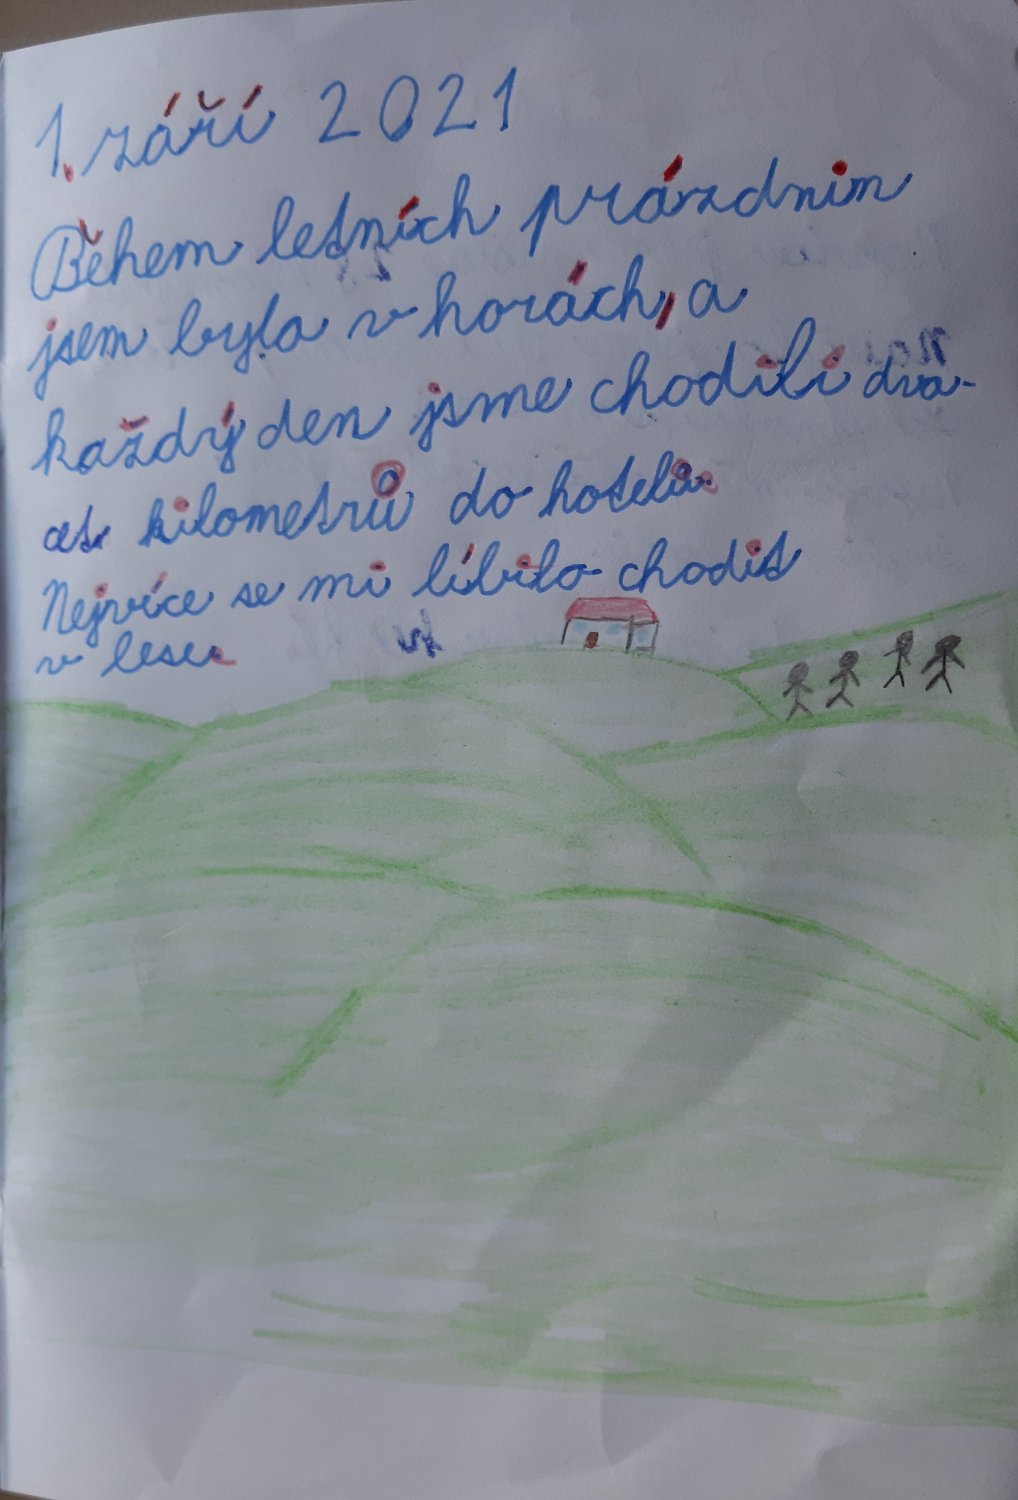 1. září 2021
Během letních prázdnin
jsem byla v horách, a
každý den jsme chodili dva-
cet kilometrů do hotelu.
Nejvíce se mi líbilo chodit
v lese.